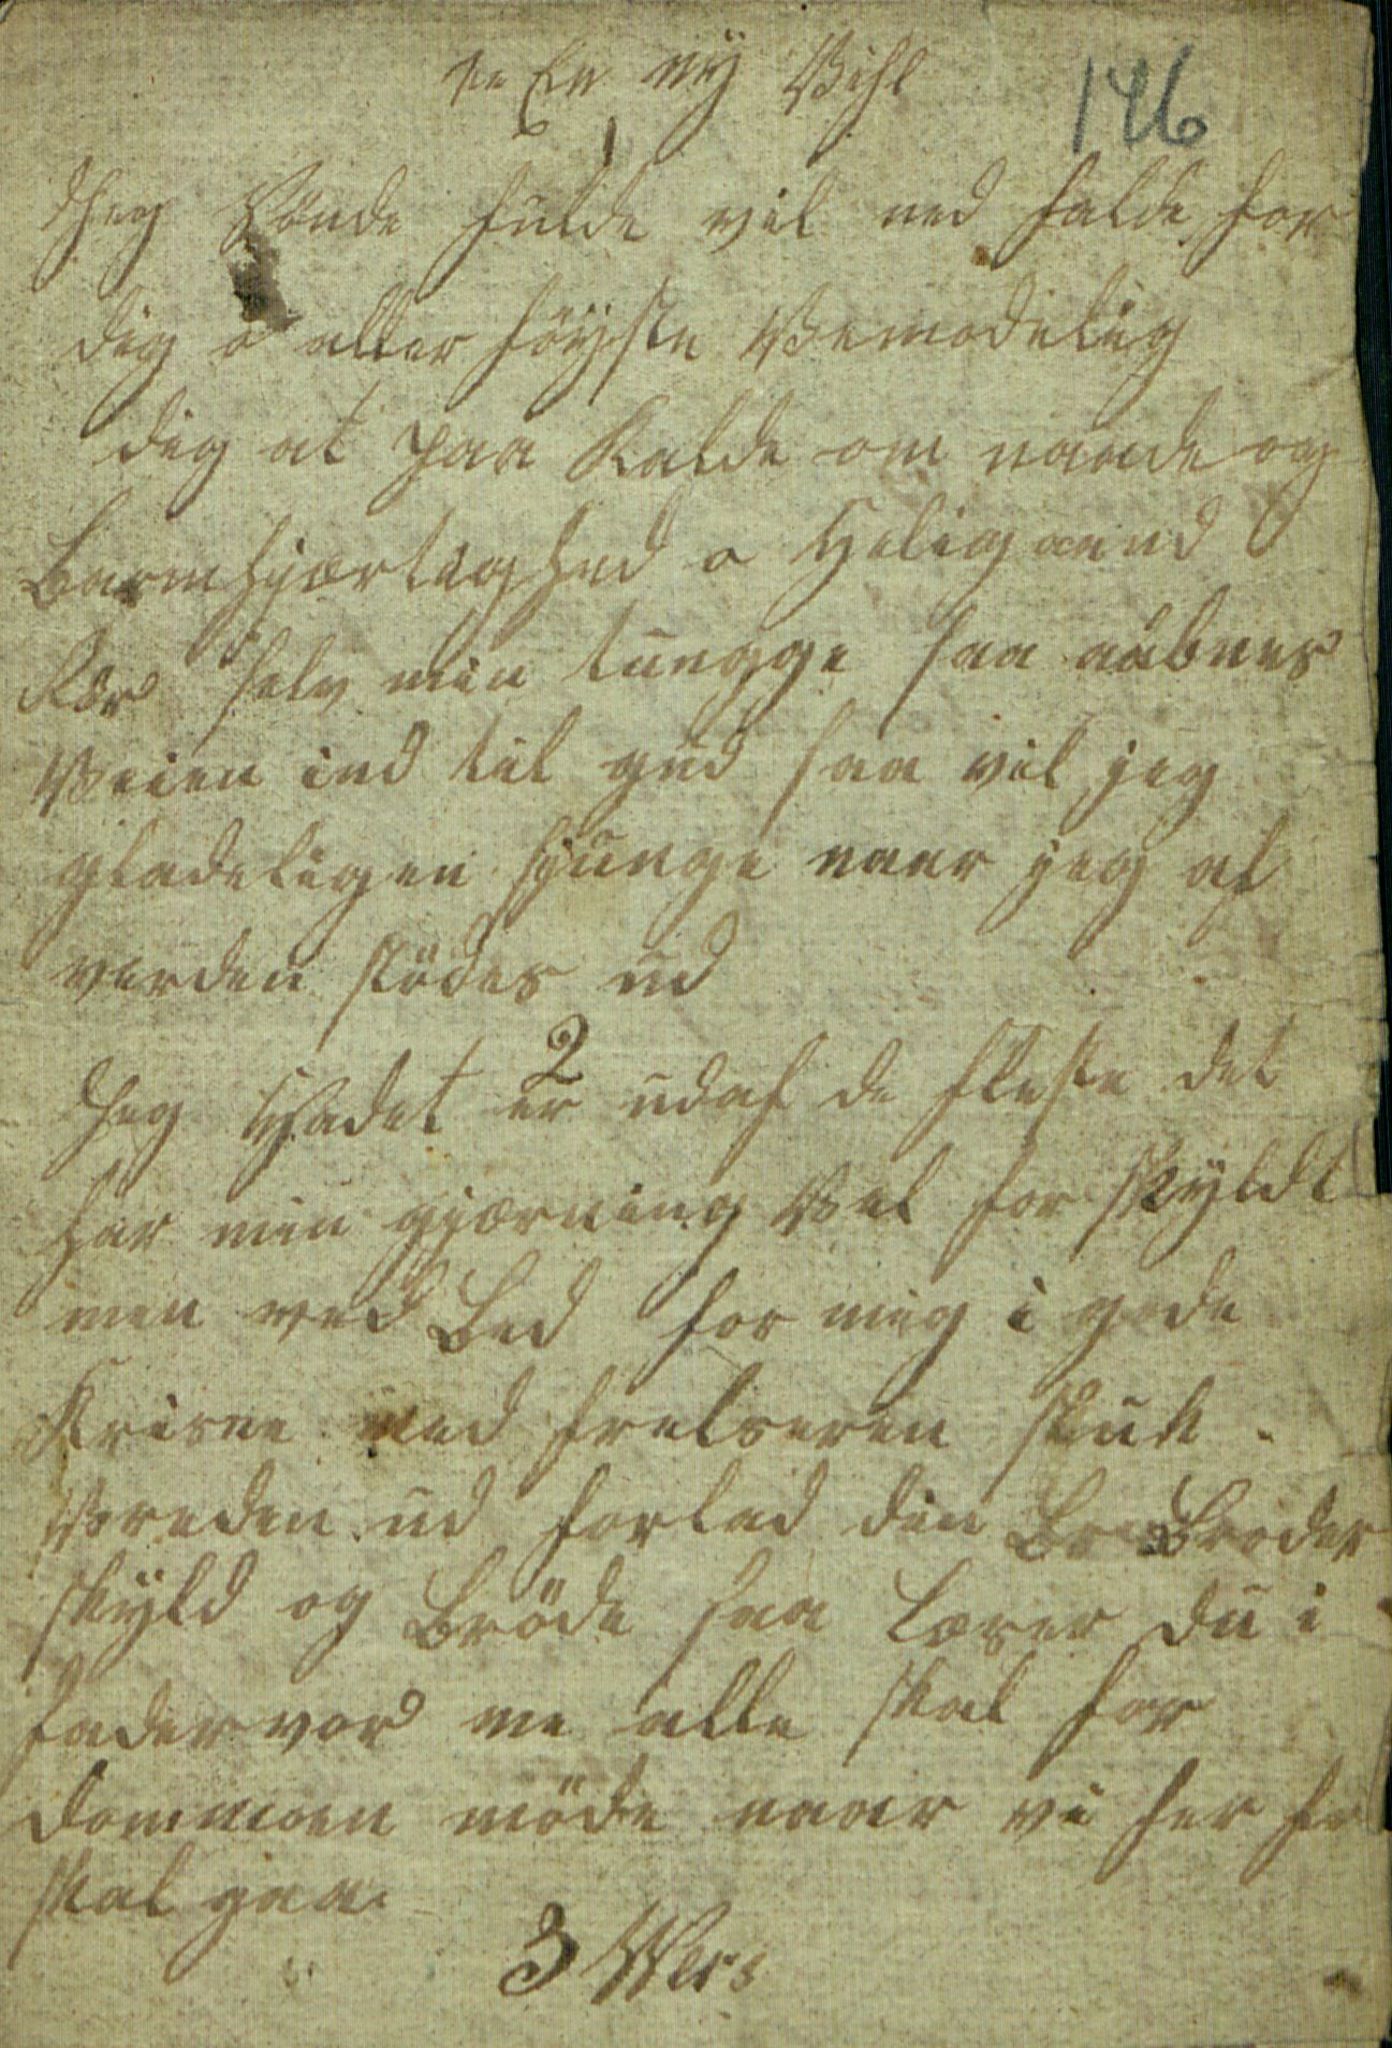 En ny Vise
146
1
Jeg Sönde fulde vil ned falde for
dig o aller höyste Vemodelig
dig at paa kalde om naade og
Barmhjærtighed o Heligaand
Rør selv min tungge saa aabnes
Veien ind til gud saa vil jeg
gladeligen sjunge naar jeg af
verden stödes ud
2
Jeg Hadet er udaf de fleste det
har min gjærning Vel for skyldt
men ved Bed for mig i gode
Kristne ved frelseren sluk
Vreden ud forlad din Br Broder
skyld og Bröde saa Lærer du i
fadervor me alle skal for
Dommen möde naar vi her fra
skal gaa
3 Vers